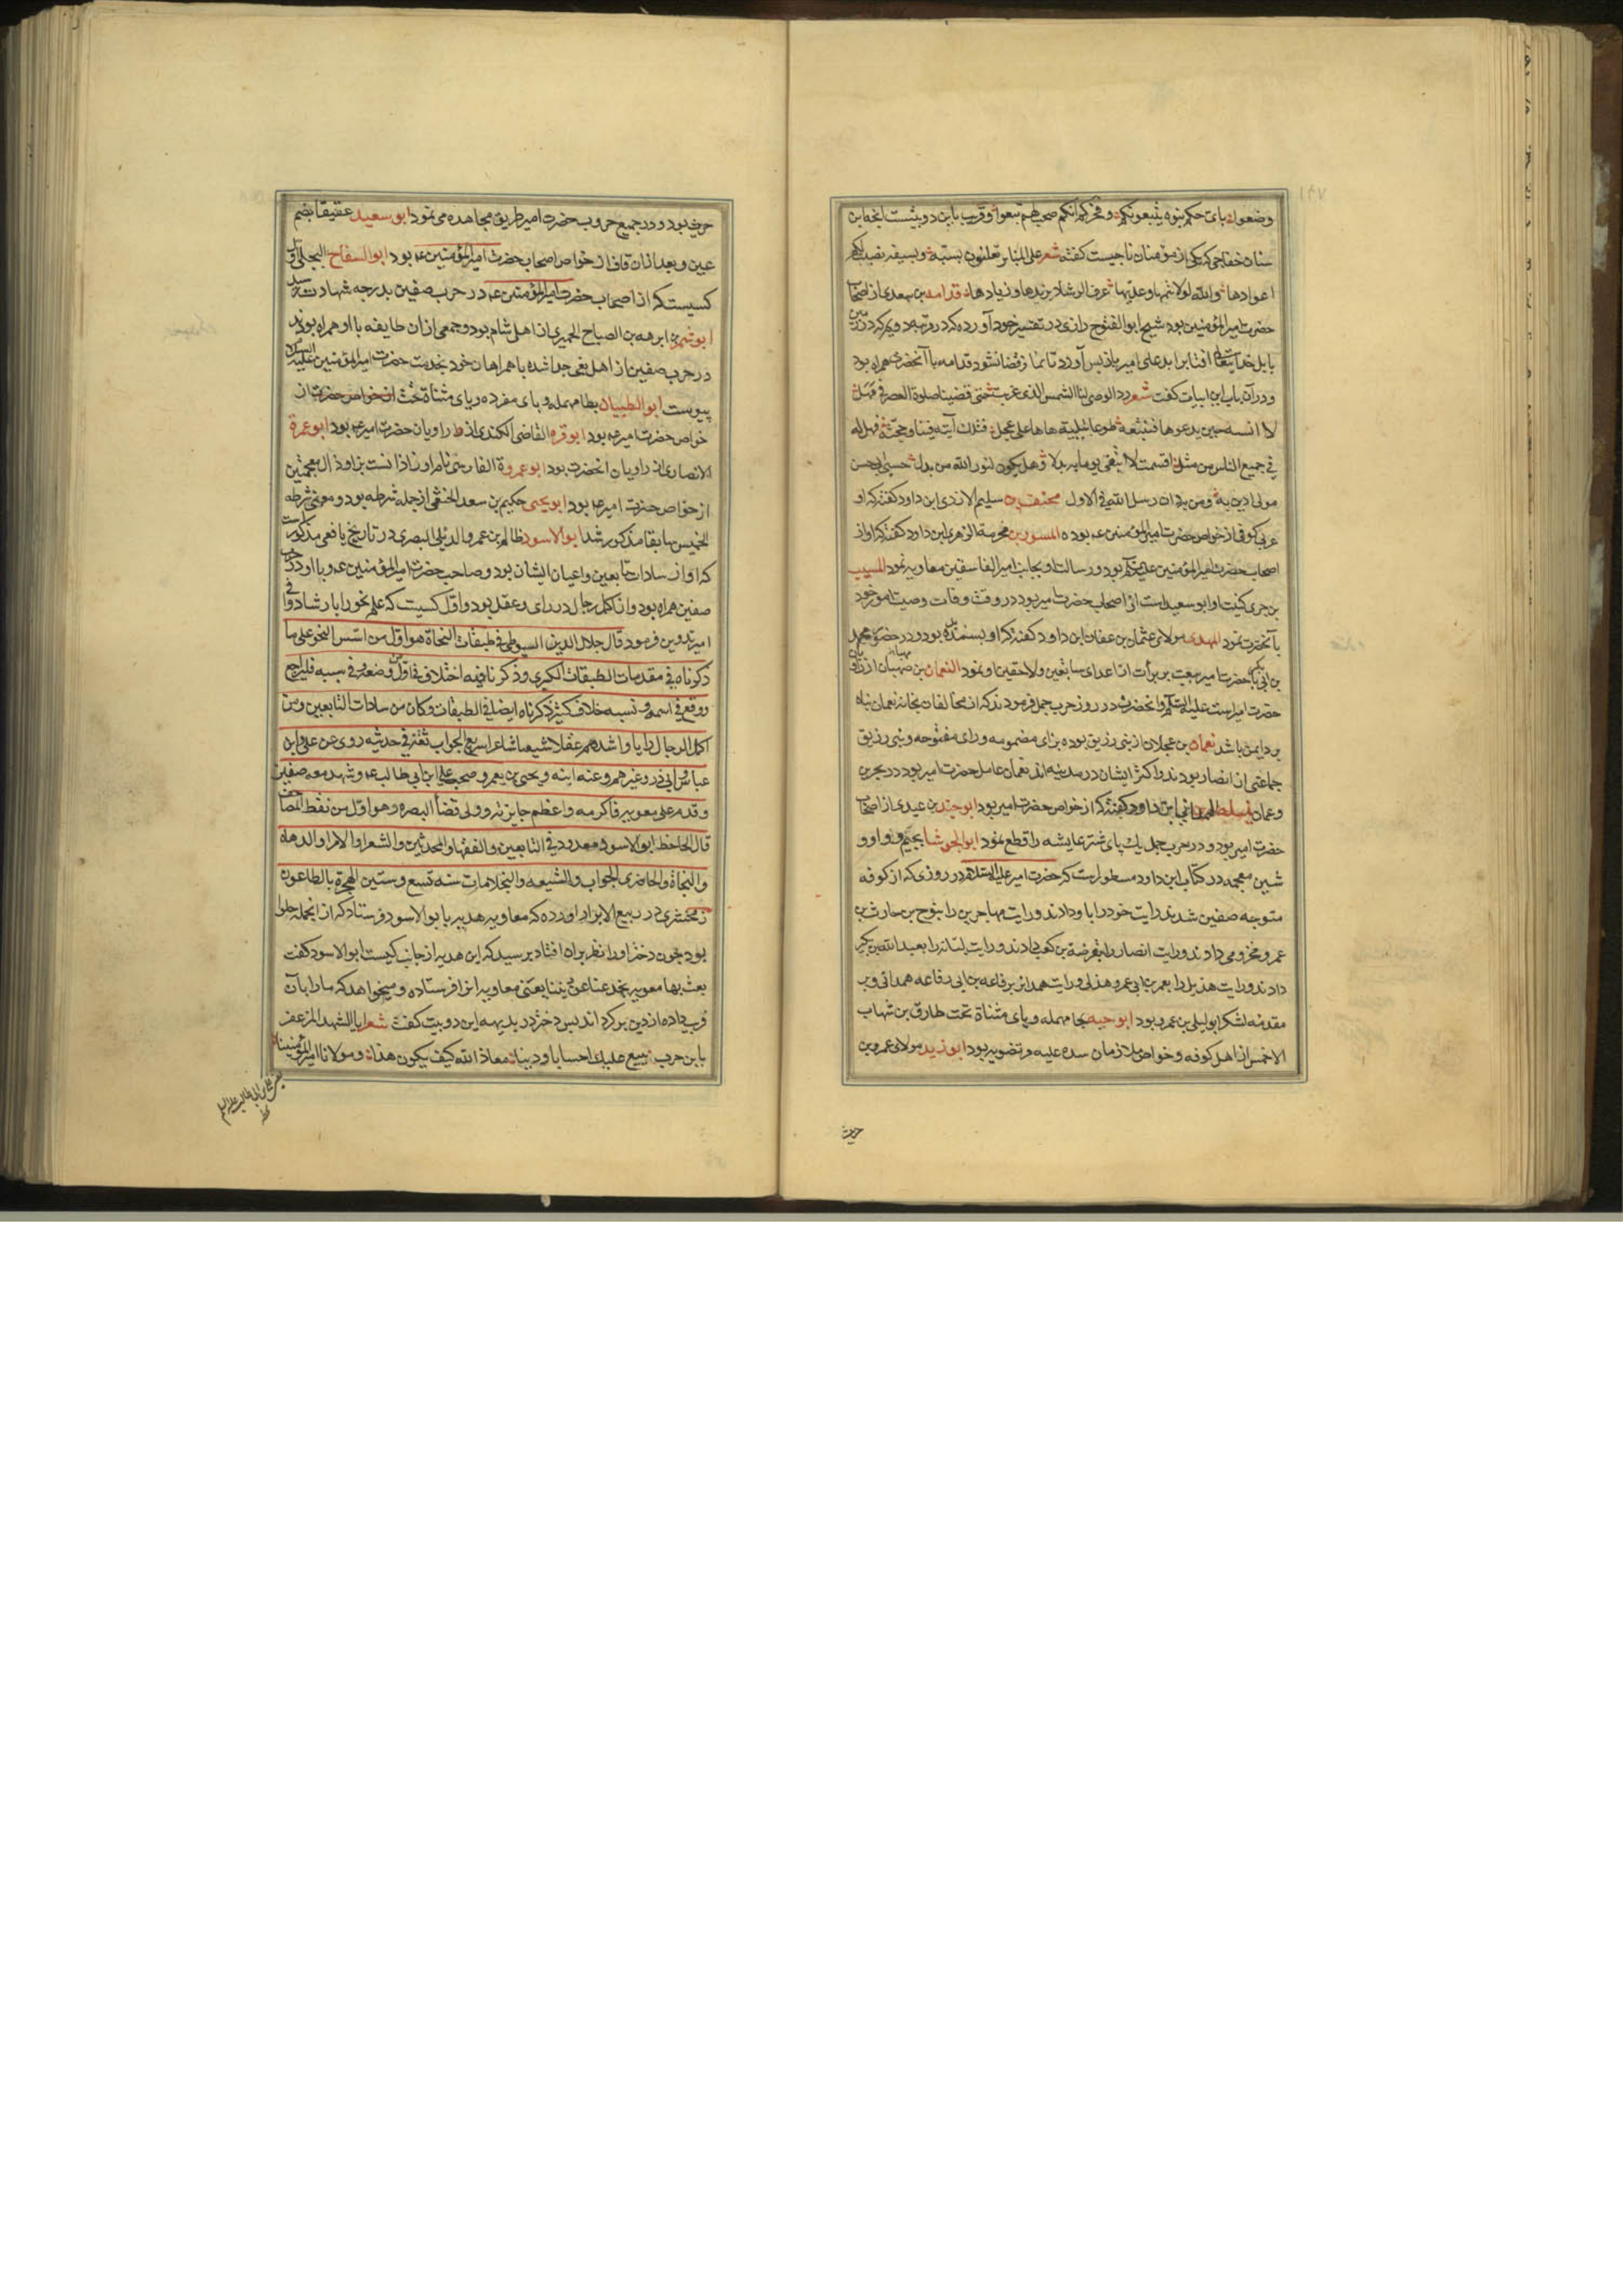 وضعوا بای حکم بنوه یتبعونکم و فخرکم انکم صحب لهم تبعوا و قریب باین دو بیتست انچه ابن
سنان خفاجی که یکی از مؤمنان ناجیست کفته شعر علی المنابر تعلنون بسبه و بسیفه نصبت لکم
اعوادها والله لولا تیمها وعدیها عرف الرشاد یزیدها و زیادها قدامه بن سعدی از اصحاب
حضرت امیرالمؤمنین بود شیخ ابو الفتوح رازی در تفسیر خود آورده که در زمین
بابل خدایتعالی افتابرا بدعای امیر بازپس آورد تا نماز قضا نشود قدامه با آنحضرت همراه بود
و در آن باب این ابیات کفت شعر رد الوصی لنا الشمس الذی غربت حتی قضینا صلوة العصر فی مهل
لا انسه حین یدعوها فتتبعه طوعا بتلبیة هاها علی عجل فتلک آیته فینا و حجته فهل له
فی جمیع الناس من مثل اقسمت لا ابتغی یوما به بدلا و هل یکون لنور الله من بدل حسبی ابی حسن
مولی ادین به و من به دان رسل الله فی الاول مخنف بن سلیم الازدی ابن داود کفته که او
عربی کوفی از خواص حضرت امیرالمؤمنین عه بوده المسور بن مخرمة الزهری ابن داود کفته که او از
اصحاب حضرت امیرالمؤمنین علیه السلام بود و رسالت او بجانب امیر الفاسقین معاویه نمود المسیب
بن حری کنیت او ابو سعید است از اصحاب حضرت امیر بود در وقت وفات وصیت امور خود
بآنحضرت نمود المهدی مولای عثمان بن عفان ابن داود کفته که او پسندیده بود و در حضور محمد
بن ابی بکر با حضرت امیر بیعت بر برأت از اعدای سابقین و لاحقین او نمود النعمان بن صهبان از راویان
حضرت امیر است علیه السلام و آنحضرت در روز حرب جمل فرمودند که از مخالفان بخانه نعمان پناه
برد ایمن باشد نعمان بن عجلان از بنی زریق بوده بزای مضمومه و رای مفتوحه و بنی زریق
جماعتی از انصار بودند و اکثر ایشان در مدینه اند نعمان عامل حضرت امیر بود در بحرین
و عمان ابن داود کفته که از خواص حضرت امیر بود ابو جند بن عیدی از اصحاب
حضرت امیر بود و در حرب جمل یک پای شتر عایشه را قطع نمود ابو الجوشا بجیم و واو و
شین معجمه در کتاب ابن داود مسطور است که حضرت امیر علیه السلام در روزی که از کوفه
متوجه صفین شدند رایت خود را باو دادند و رایت مهاجرین را بنوح بن حارث بن
عمرو مخزومی دادند و رایت انصار را بقرضة بن کعب دادند و رایت کنانه را بعبدالله بن بکیر
دادند و رایت هذیل را بعمر بن ابی عمرو هذلی و رایت همدان برفاعه بن ابی رفاعه همدانی و بر
مقدمه لشکر ابو لیلی بن عمرو بود ابو حیه بحا مهمله و یای مثناة تحت طارق بن شهاب
الاخمس از اهل کوفه و خواص ملازمان سده علیه مرتضویه بود ابو زید مولای عمرو بن
حریث
حریث بود و در جمیع حروب حضرت امیر طریق مجاهده می نمود ابو سعید عقیصا بضم
عین و بعد ازان قاف از خواص اصحاب حضرت امیرالمؤمنین عه بود ابو السفاح البجلی اول
کسیست که از اصحاب حضرت امیرالمؤمنین عه در حرب صفین بدرجه شهادت رسید
ابو شمر بن ابرهه بن الصباح الحمیری از اهل شام بود و جمعی ازان طایفه با او همراه بودند
در حرب صفین از اهل بغی جدا شده با همراهان خود بخدمت حضرت امیرالمؤمنین علیه السلام
پیوست ابو الطبیان بطا مهمله و بای مفرده و یای مثناة تحت از خواص حضرت از
خواص حضرت امیر عه بود ابو قره القاضی الکندی از راویان حضرت امیر عه بود ابو عمرة
الانصاری از راویان انحضرت بود ابو عمروة الفارسی نام او زاذانست بزا و ذال معجمتین
از خواص حضرت امیر عه بود ابو یحیی حکیم بن سعد الحنفی از جمله شرطه بود و معنی شرطه
الخمیس سابقا مذکور شد ابو الاسود ظالم بن عمرو الدئلی البصری در تاریخ یافعی مذکورست
که او از سادات تابعین و اعیان ایشان بود و صاحب حضرت امیرالمؤمنین عه و با او در حرب
صفین همراه بود و از اکمل رجال در رای و عقل بود و اول کسیست که علم نحو را بارشاد
امیر تدوین فرمود قال جلال الدین السیوطی فی طبقات النحاة هو اول من اسس النحو علی ما
ذکرناه فی مقدمات الطبقات الکبری و ذکرنا فیه اختلاف فی اول من وضعه و فی سببه فلیراجع
و وقع فی اسمه و نسبه خلاف کثیر ذکرناه ایضا فی الطبقات و کان من سادات التابعین و من
اکمل الرجال رایا و اشدهم عقلا شیعیا شاعرا سریع الجواب ثقة فی حدیثه روی عن علی و ابن
عباس و ابی ذر و غیرهم و عنه ابنه و یحیی بن یعمر و صحب علی ابن ابی طالب عه و شهد معه صفین
و قدم علی معویه فاکرمه و اعظم جایزته و ولی قضأ البصره و هو اول من نقط المصاحف
قال الجاحظ ابو الاسود معدود فی التابعین و الفقها و المحدثین و الشعرا و الامرا و الدهاة
و النحاة و الحاضری الجواب و الشیعه و البخلا مات سنه تسع و ستین الهجرة بالطاعون
زمخشری در ربیع الابرار اورده که معاویه هدیه بابو الاسود فرستاد که از انجمله حلوا
بود چون دختر او را نظر بران افتاد پرسید که این هدیه از جانب کیست ابو الاسود کفت
بعث بها معویه یخدعنا عن دیننا یعنی معاویه انرا فرستاده و میخواهد که ما را بآن
فریب داده از دین برکرداند پس دختر در بدیهه این دو بیت کفت شعر ابا الشهد المزعفر
یا بن حرب نبیع علیک احسابا و دینا معاذ الله کیف یکون هذا و مولانا امیرالمؤمنینا